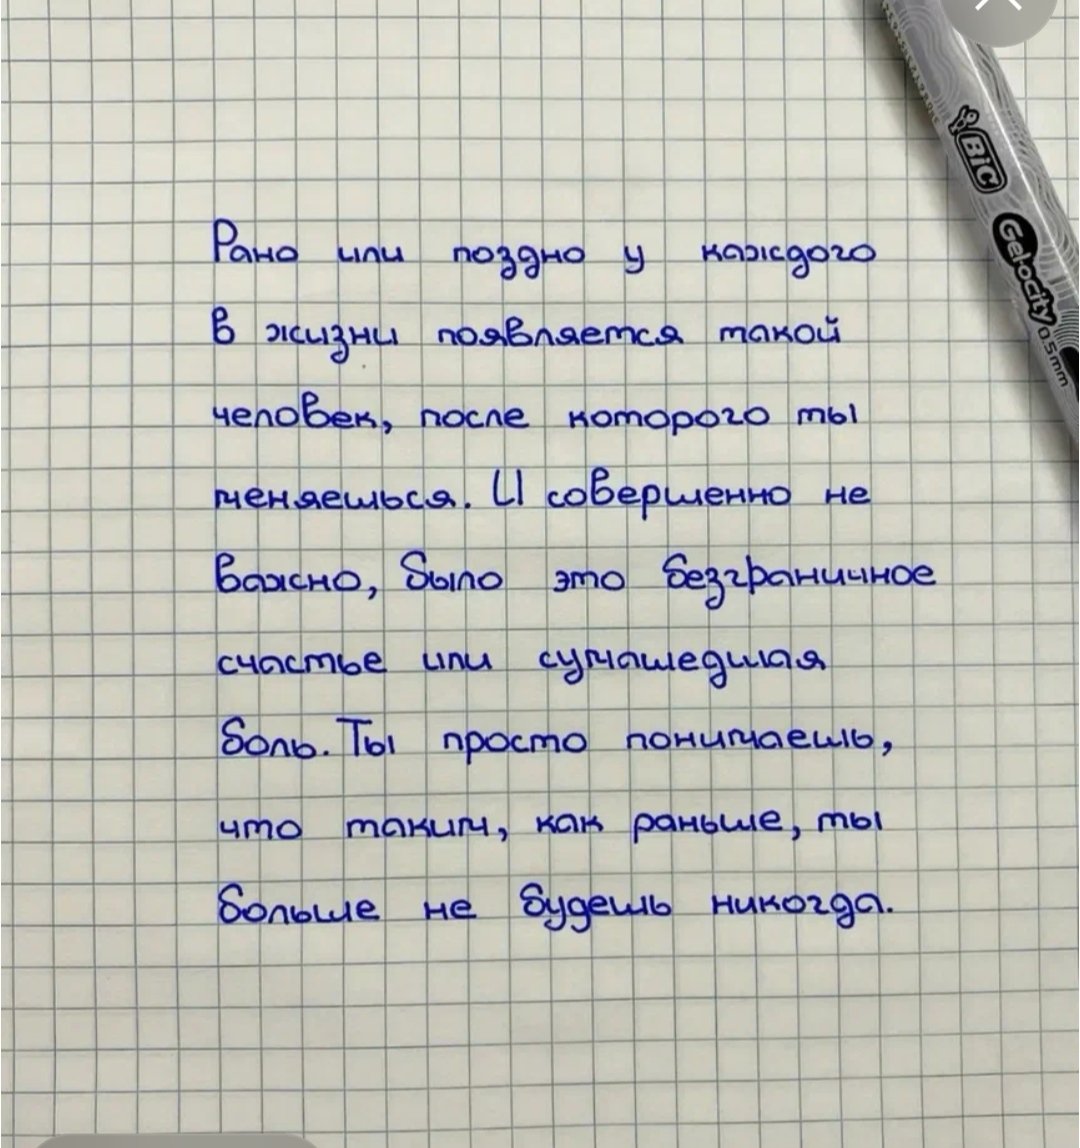 BIC
Gelocity 0.5mm
Рано или поздно у каждого
в жизни появляется такой
человек, после которого ты
меняешься. И совершенно не
важно, было это безграничное
счастье или сумашедшая
боль. Ты просто понимаешь,
что таким, как раньше, ты
больше не будешь никогда.